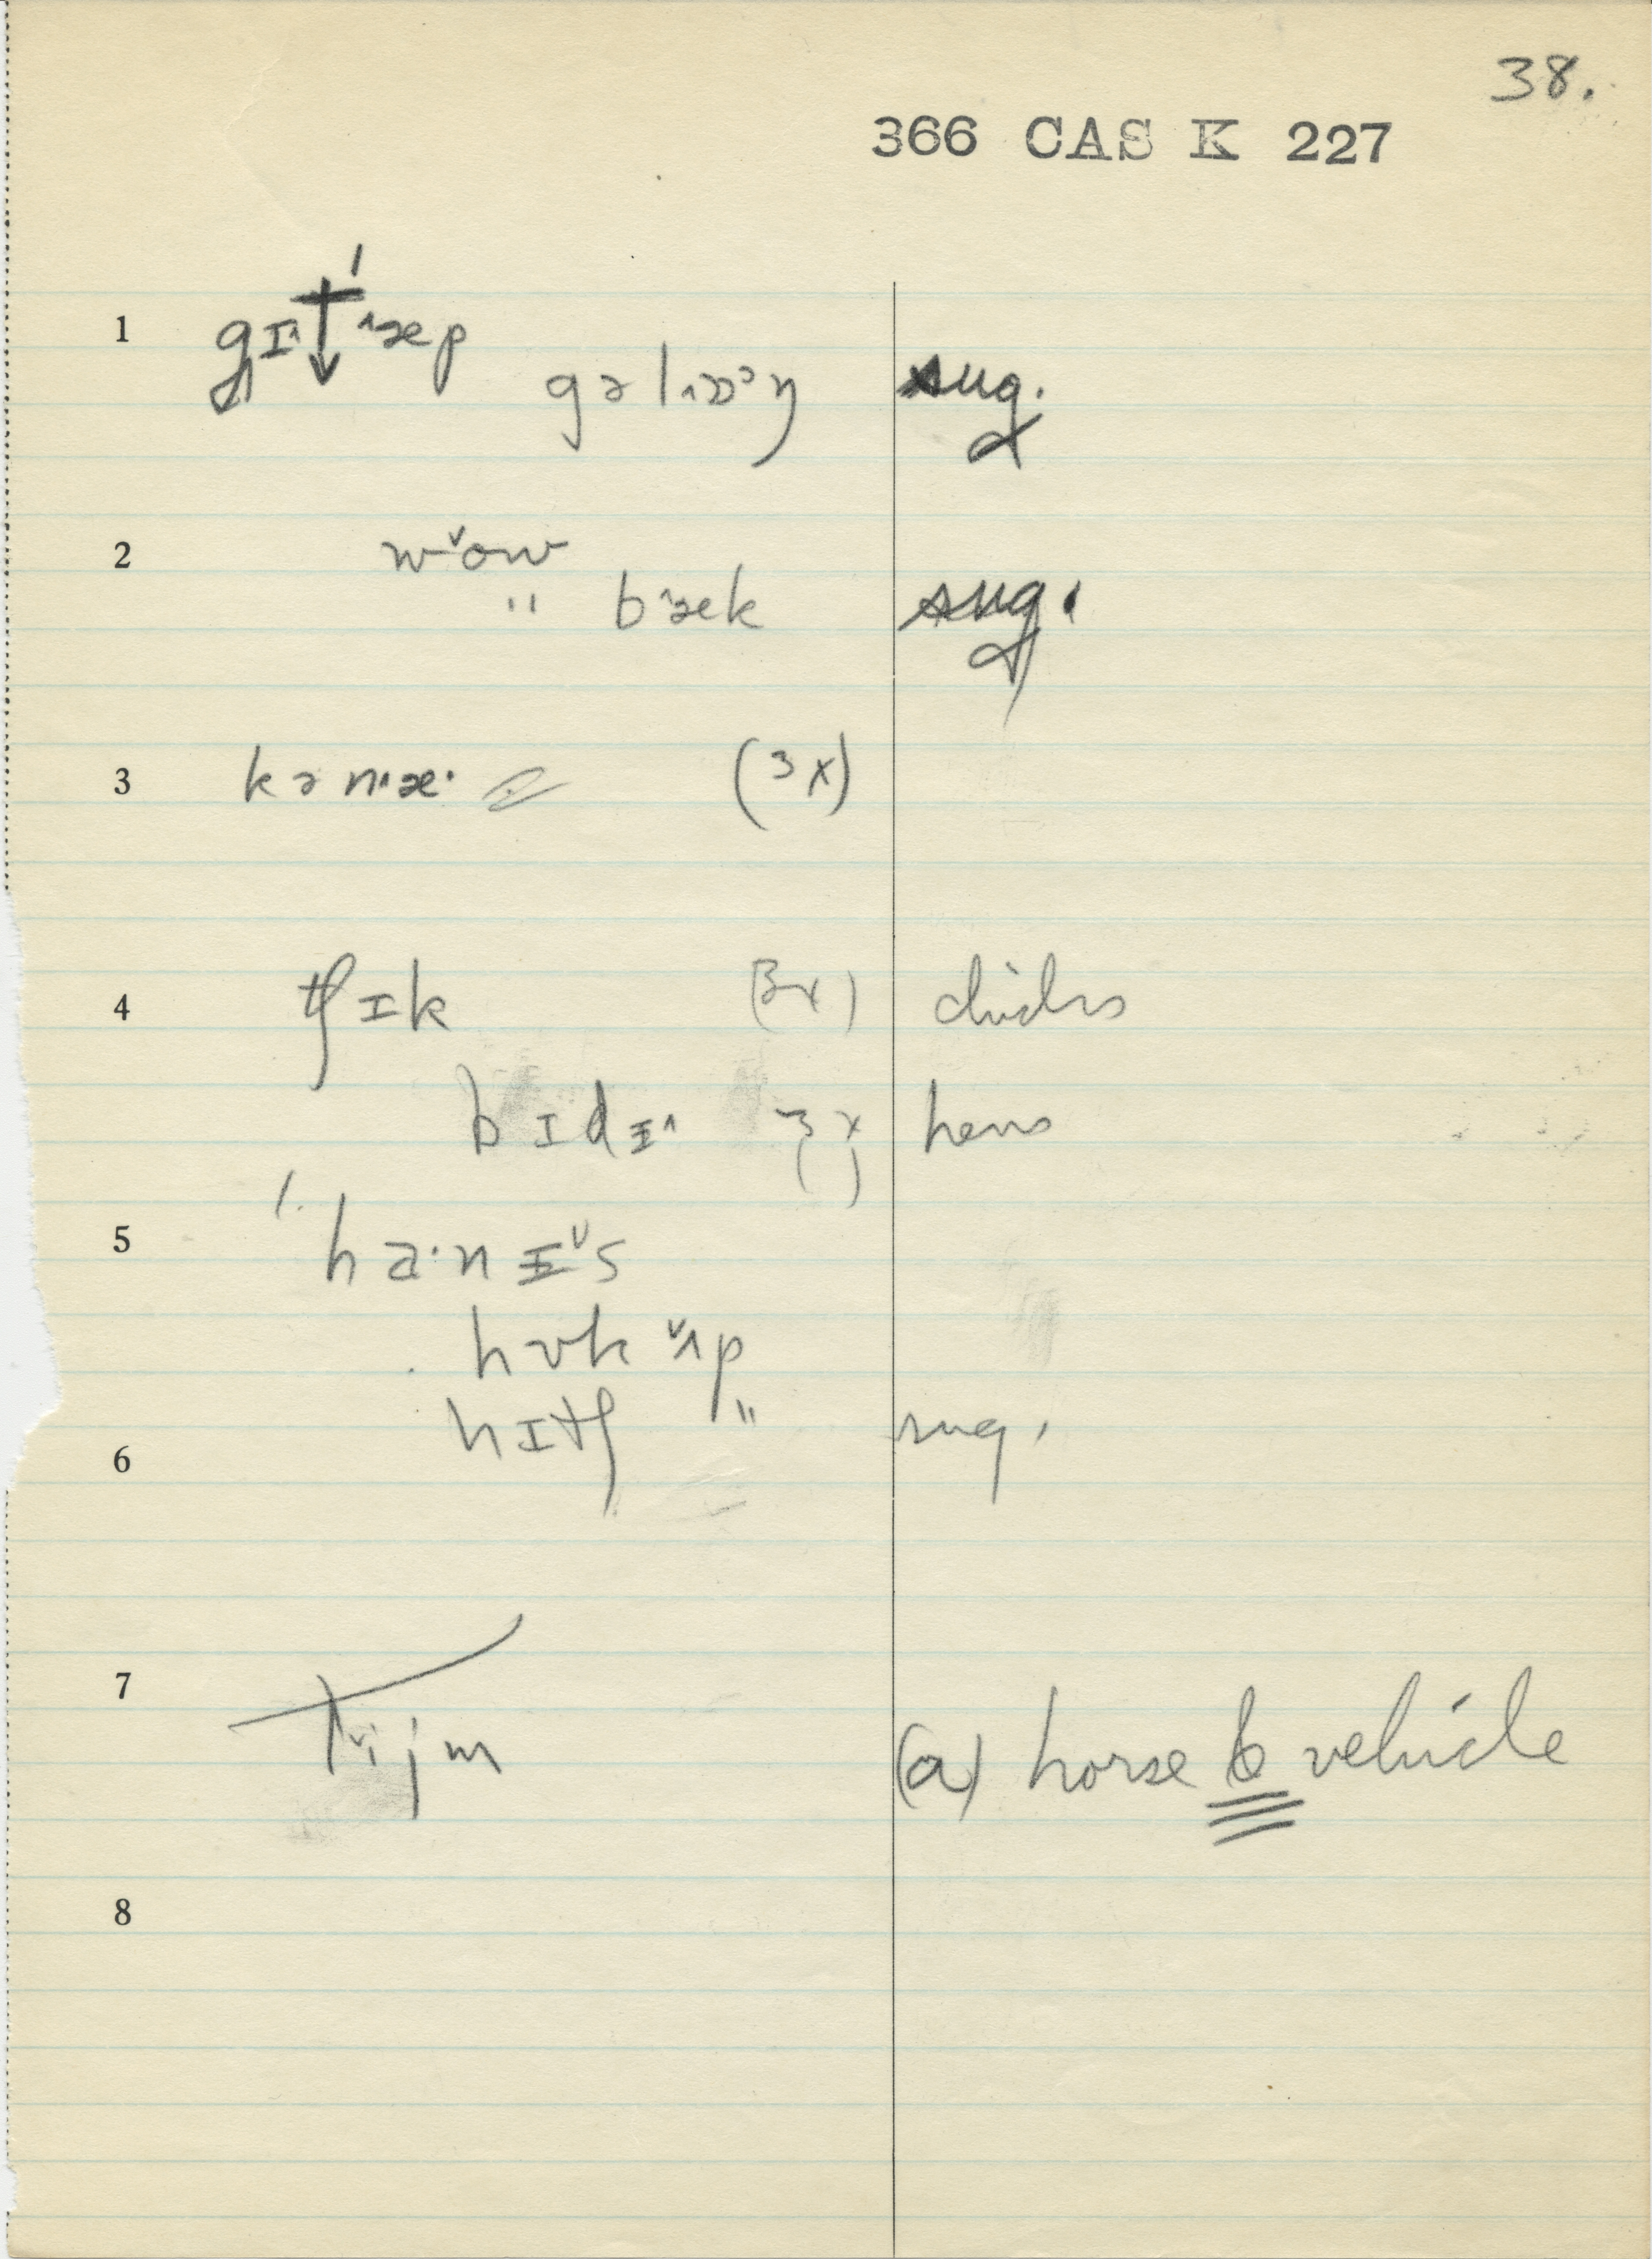 38.
366 CAS K 227
1 gɪ^t↓^æp
gəl^ɒᵓŋ sug.
2 wˇow
" b^æk sug.
3 kən^æ· (3x)
4 tʃɪk (3x) chicks
bɪdɪ^ (3x) hens
5 ha·nɪˇs
hʊk ˇʌp
6 hɪtʃ " sug.
7 tˇijm (a) horse & vehicle
8